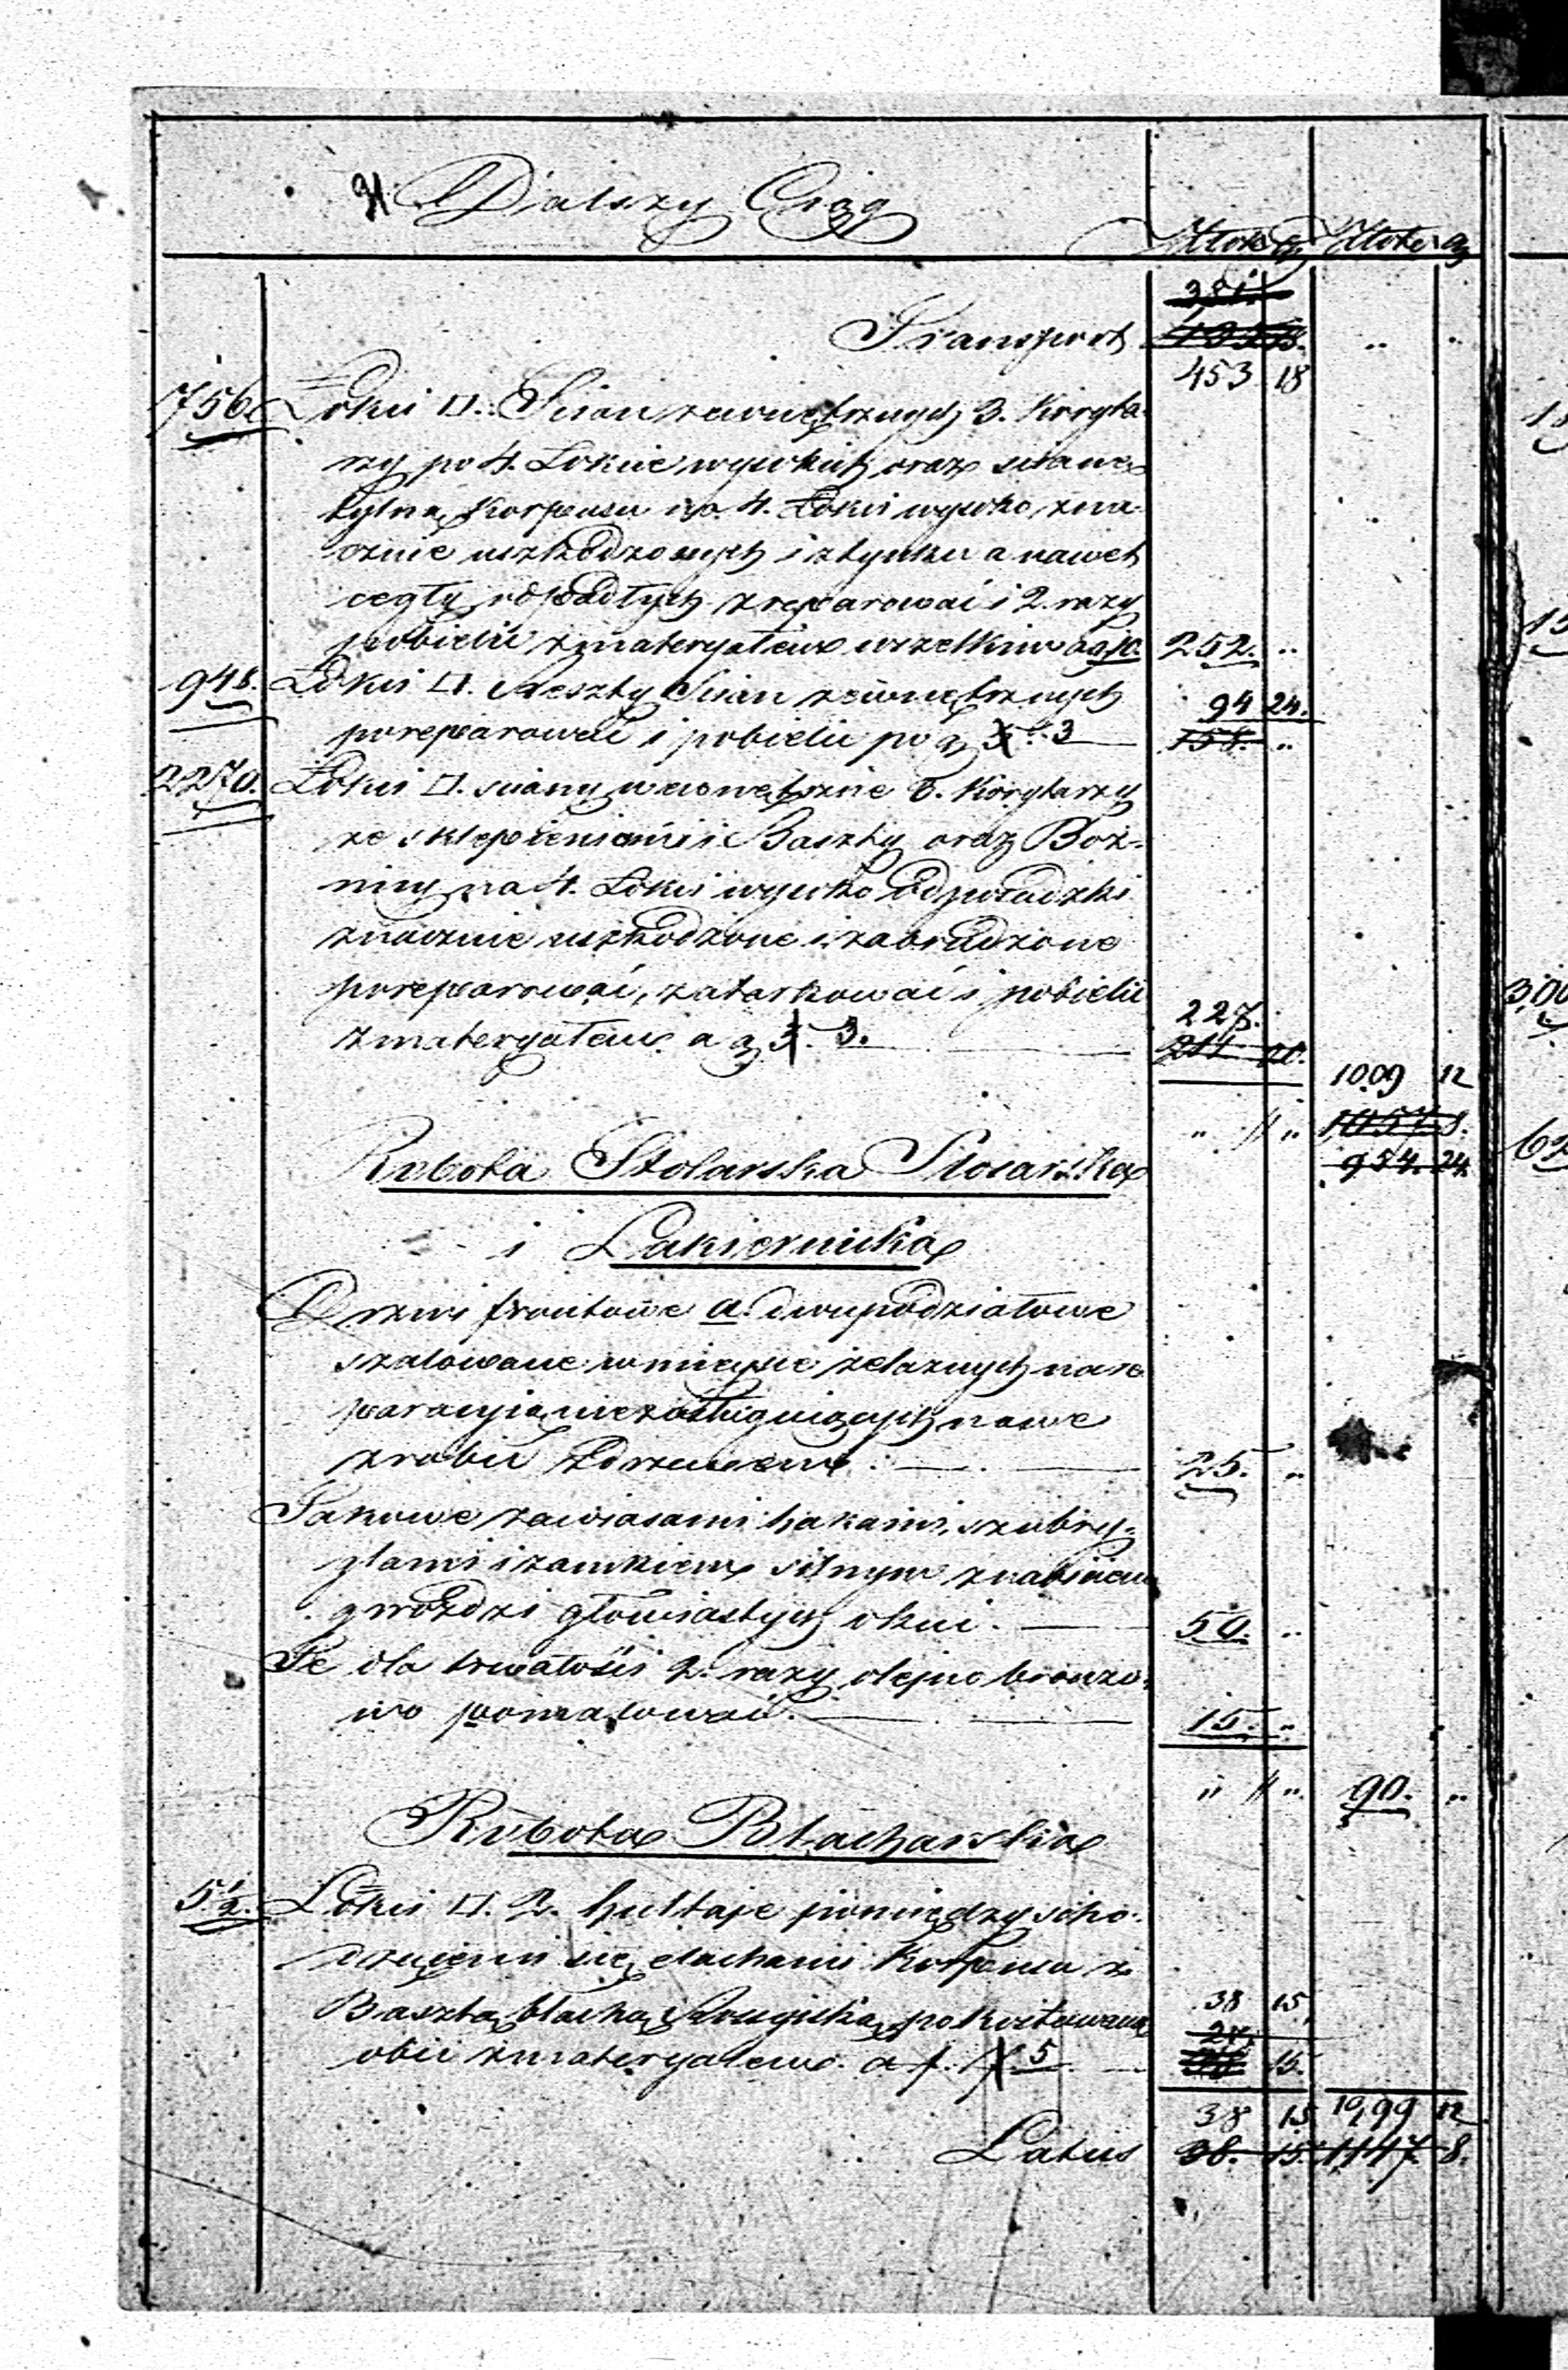 Dalszy Ciąg
Złote gr Złote gr
Transport
453 18
756. Łokci □. Scian zewnętrznych 3. Koryta-
rzy po 4. Łokcie wysokich oraz sciane
tylną Korpusu na 4. Łokci wysoko zna-
cznie uszkodzonych i z tynku a nawet
cegły odpadłych zreparować i 2. razy
pobielić z materyałem wszelkim a gr 10. 252. ..
948. Łokci □. Reszty Scian zewnętrznych 94 24.
poreparować i pobielić po gr 5 3 158. ..
2270. Łokci □. sciany wewnętrzne 6. Korytarzy
ze sklepieniami i Baszty oraz Boż-
nicy na 4. Łokci wysoko od posadzki
znacznie uszkodzone i zabrudzone
poreparować, zatarkować i pobielić
z materyałem a gr 5. 3. 227.
1009 12
1057 8.
954. 24.
Robota Stolarska Slosarska
i Lakiernicka
Drzwi frontowe a. dwupodziałowe
szalowane w miejsce żelaznych na re-
paracyją niezasługujących nowe
zrobić z drzewem. 25. ..
Takowe zawiasami hakami, szubry-
glami i zamkiem silnym z nabiciem
gwoździ głowiastych okuć. 50. ..
Te dla trwałości 2. razy olejno bronzo-
wo pomalować. 15. ..
90. ..
Robota Blacharska
5 1/2. Łokci □. 2. hultaje pomiędzy scho-
dzącemi się dachami Korpusu z
Basztą blachą 38 15
obić z materyałem. a f. 7 5 15.
38 15 10,99 12
Latus 38. 15. 1147. 8.